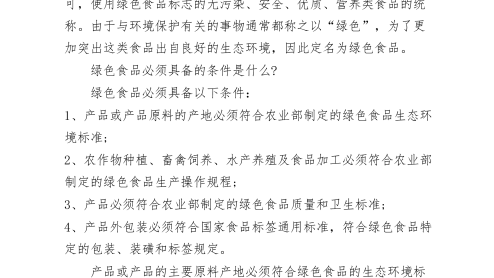 可，使用绿色食品标志的无污染、安全、优质、营养类食品的统
称。由于与环境保护有关的事物通常都称之以“绿色”，为了更
加突出这类食品出自良好的生态环境，因此定名为绿色食品。
绿色食品必须具备的条件是什么?
绿色食品必须具备以下条件：
1、产品或产品原料的产地必须符合农业部制定的绿色食品生态环
境标准;
2、农作物种植、畜禽饲养、水产养殖及食品加工必须符合农业部
制定的绿色食品生产操作规程;
3、产品必须符合农业部制定的绿色食品质量和卫生标准;
4、产品外包装必须符合国家食品标签通用标准，符合绿色食品特
定的包装、装磺和标签规定。
产品或产品的主要原料产地必须符合绿色食品的生态环境标